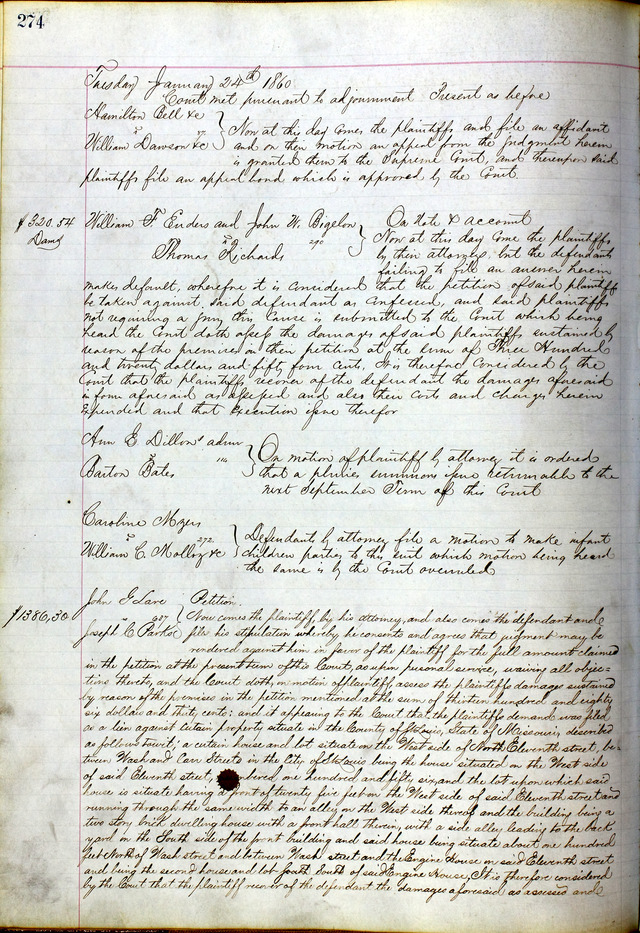 274
Tuesday January 24th 1860
Court met pursuant to adjournment Present as before
Hamilton Bell &c
vs 97
William Dawson &c
Now at this day comes the plaintiffs and file an affidavit
and on their motion an appeal from the judgment herein
is granted them to the Supreme Court, and thereupon said
plaintiffs file an appeal bond which is approved by the Court
$320.54
Damg
William F. Enders and John W. Bigelow
vs 290
Thomas Richards
On Note & account
Now at this day come the plaintiffs
by their attorney, but the defendant
failing to fill an answer herein
makes default, wherefore it is considered that the petition of said plaintiffs
be taken against said defendant as confessed, and said plaintiffs
not requiring a jury this cause is submitted to the Court which being
heard the Court doth assess the damages of said plaintiffs sustained by
reason of the premises in their petition at the sum of Three Hundred
and twenty dollars and fifty four cents. It is therefore considered by the
Court that the plaintiffs recover of the defendant the damages aforesaid
in form aforesaid as assessed and also their costs and charges herein
expended and that execution issue therefor
Ann E Dillon's admr
vs
Barton Bates
On motion of plaintiff by attorney it is ordered
that a pluries summons issue returnable to the
next September Term of this Court
Caroline Myers
vs 272
William C. Molloy &c
Defendants by attorney file a motion to make infant
children parties to this suit which motion being heard
the same is by the Court overruled
$1386,30
John G Lare
vs 287
Joseph C Parks
Petition.
Now comes the plaintiff, by his attorney, and also comes the defendant and
files his stipulation whereby he consents and agrees that judgment may be
rendered against him in favor of the plaintiff for the full amount claimed
in the petition at the present term of this Court, as upon personal service, waiving all objec=
tions thereto, and the Court doth, on motion of plaintiff, assess the plaintiffs damages sustained
by reason of the premises in the petition mentioned at the sum of thirteen hundred and eighty
six dollars and thirty cents: and it appearing to the Court that the plaintiffs demand was filed
as a lien against certain property situate in the County of St Louis, State of Missouri, described
as follows towit; a certain house and lot situate on the West side of North Eleventh street, be-
tween Wash and Carr Streets in the City of St Louis being the house situated on the West side
of said Eleventh street, one hundred and fifty six, and the lot upon which said
house is situate having a front of twenty five feet on the West side of said Eleventh street and
running through the same width to an alley on the West side thereof and the building being a
two story brick dwelling house with a front hall therein, with a side alley leading to the back
yard on the South side of the front building and said house being situate about one hundred
feet North of Wash street and between Wash street and the Engine House on said Eleventh street
and being the second house and lot South of said Engine House, It is therefore considered
by the Court that the plaintiff recover of the defendant the damages aforesaid as assessed and